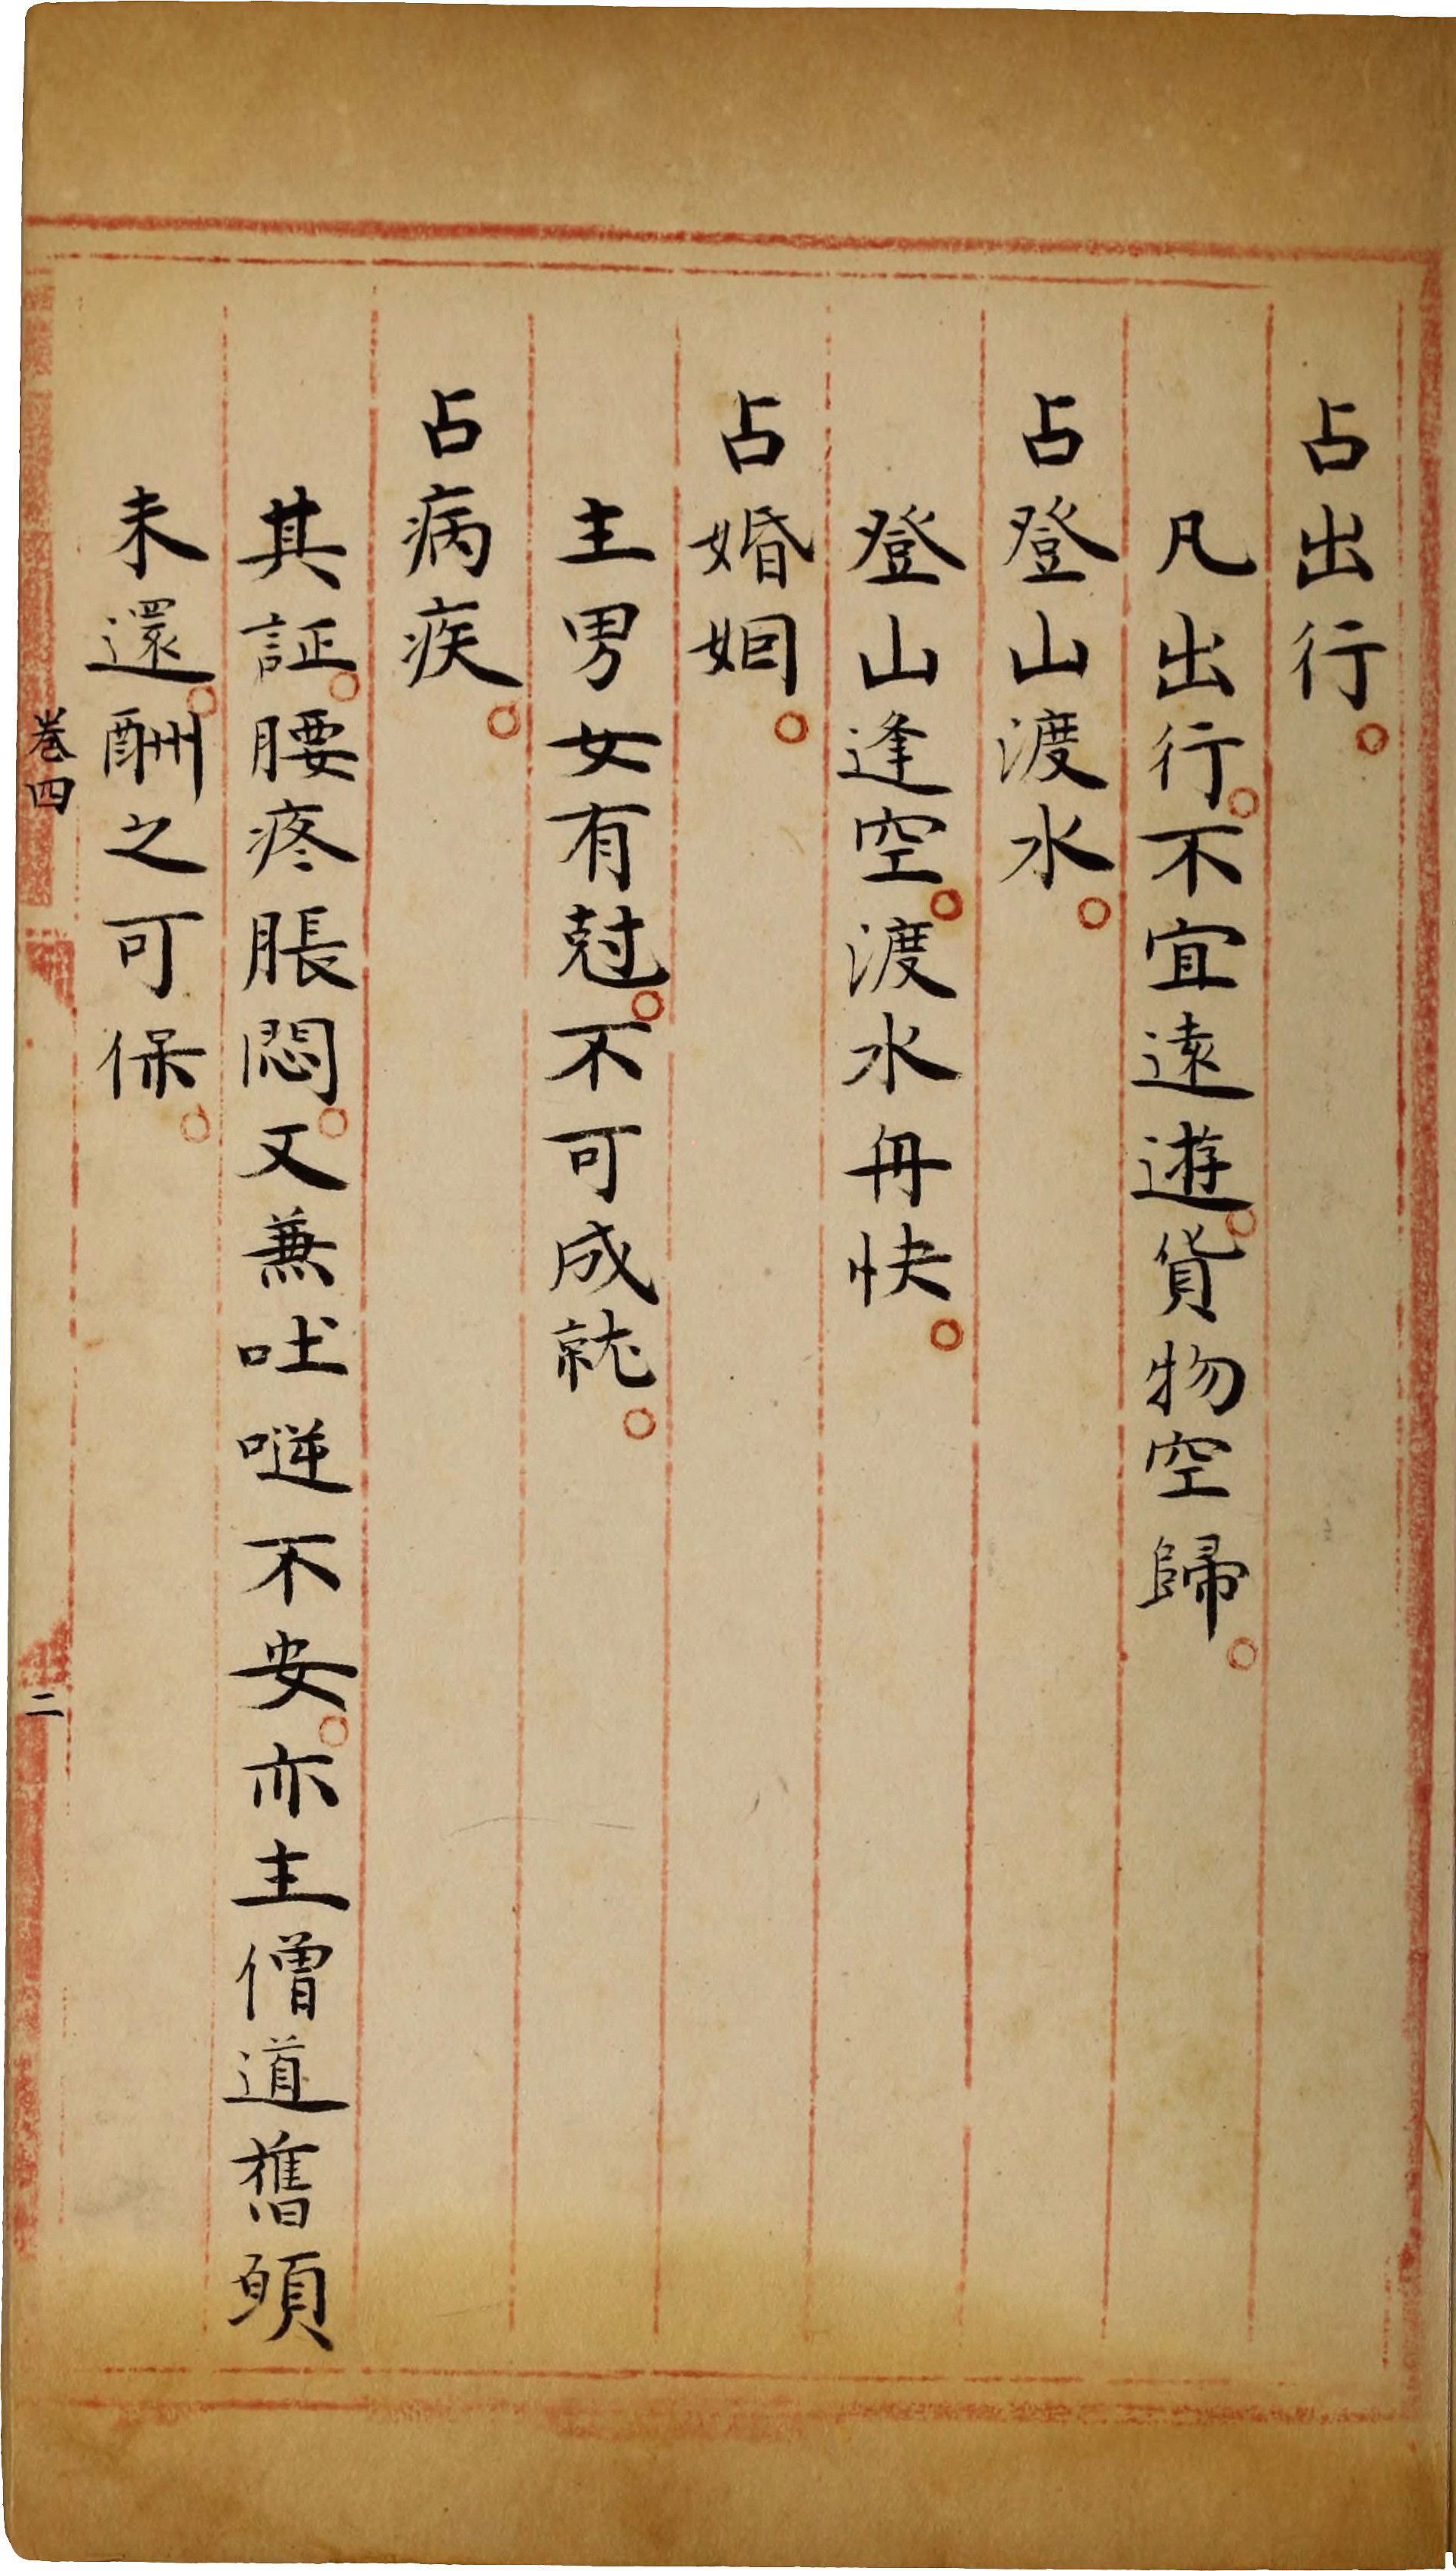 占出行。
凡出行。不宜遠遊。貨物空歸。
占登山渡水。
登山逢空。渡水舟快。
占婚姻。
主男女有尅。不可成就。
占病疾。
其証。腰疼脹悶。又兼吐逆不安。亦主僧道舊願
未還。酬之可保。
卷四
二